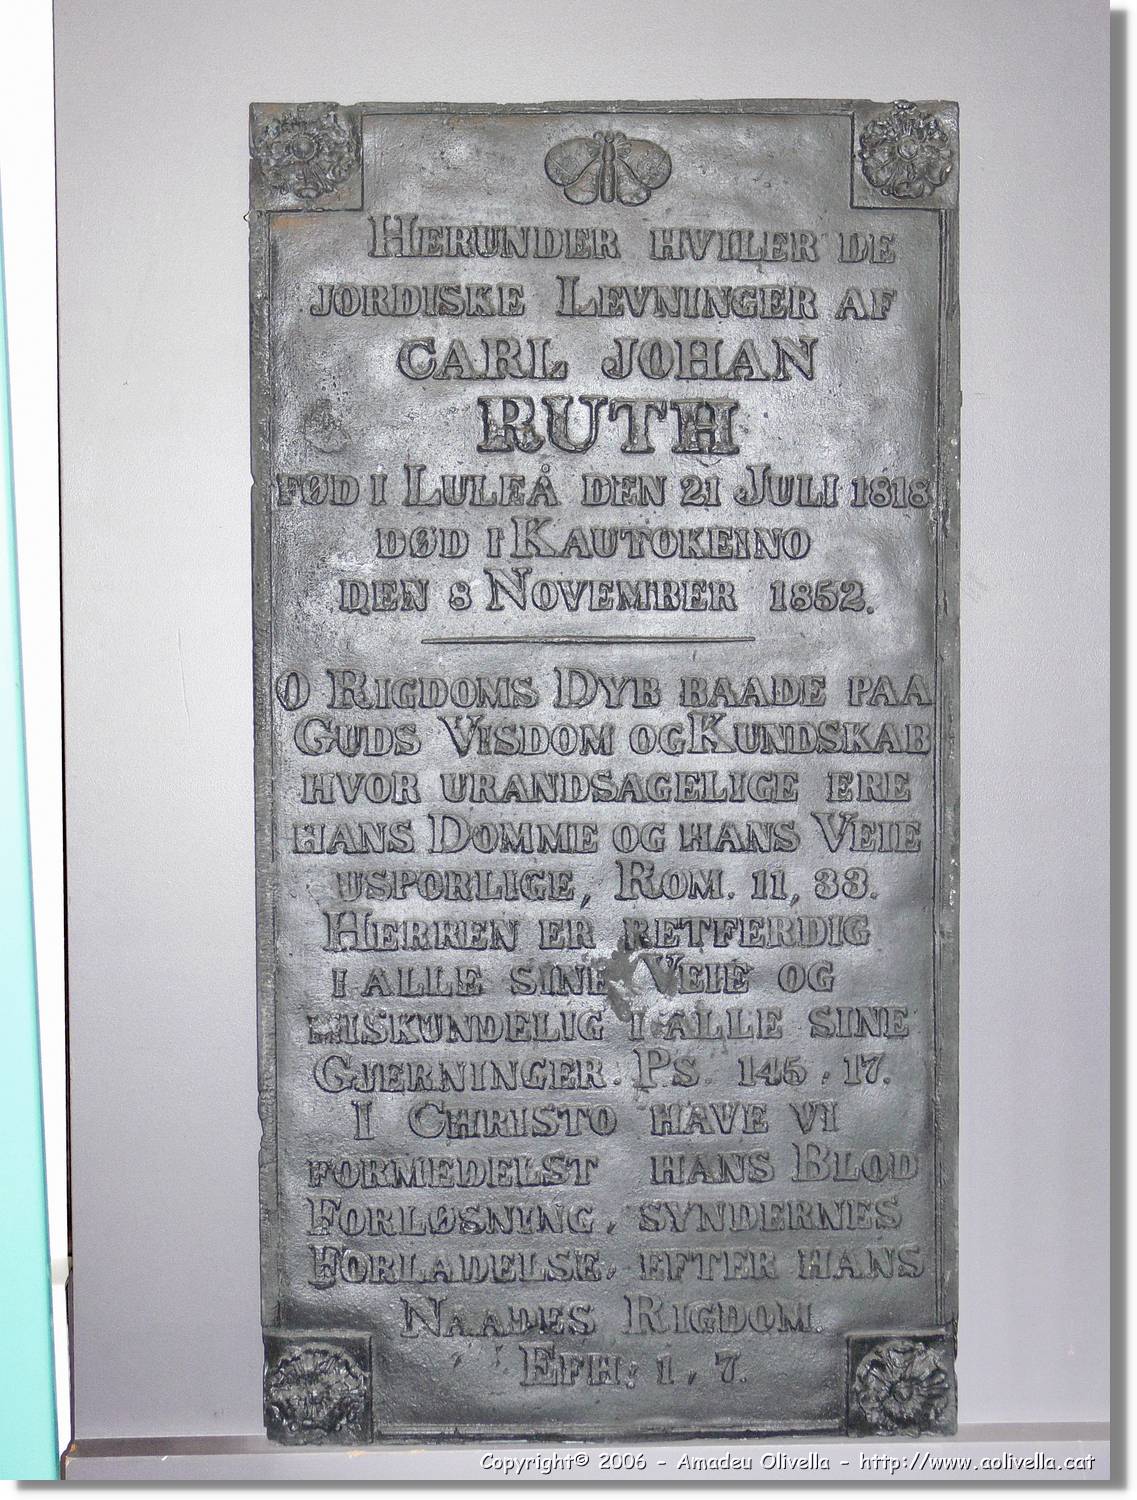 HERUNDER HVILER DE
JORDISKE LEVNINGER AF
CARL JOHAN
RUTH
FØD I LULEÅ DEN 21 JULI 1818
DØD I KAUTOKEINO
DEN 8 NOVEMBER 1852.
O RIGDOMS DYB BAADE PAA
GUDS VISDOM OG KUNDSKAB
HVOR URANDSAGELIGE ERE
HANS DOMME OG HANS VEIE
USPORLIGE, ROM. 11, 33.
HERREN ER RETFERDIG
I ALLE SINE VEIE OG
MISKUNDELIG I ALLE SINE
GJERNINGER. PS. 145, 17.
I CHRISTO HAVE VI
FORMEDELST HANS BLOD
FORLØSNING, SYNDERNES
FORLADELSE, EFTER HANS
NAADES RIGDOM.
EFH; 1, 7.
Copyright© 2006 - Amadeu Olivella - http://www.aolivella.cat